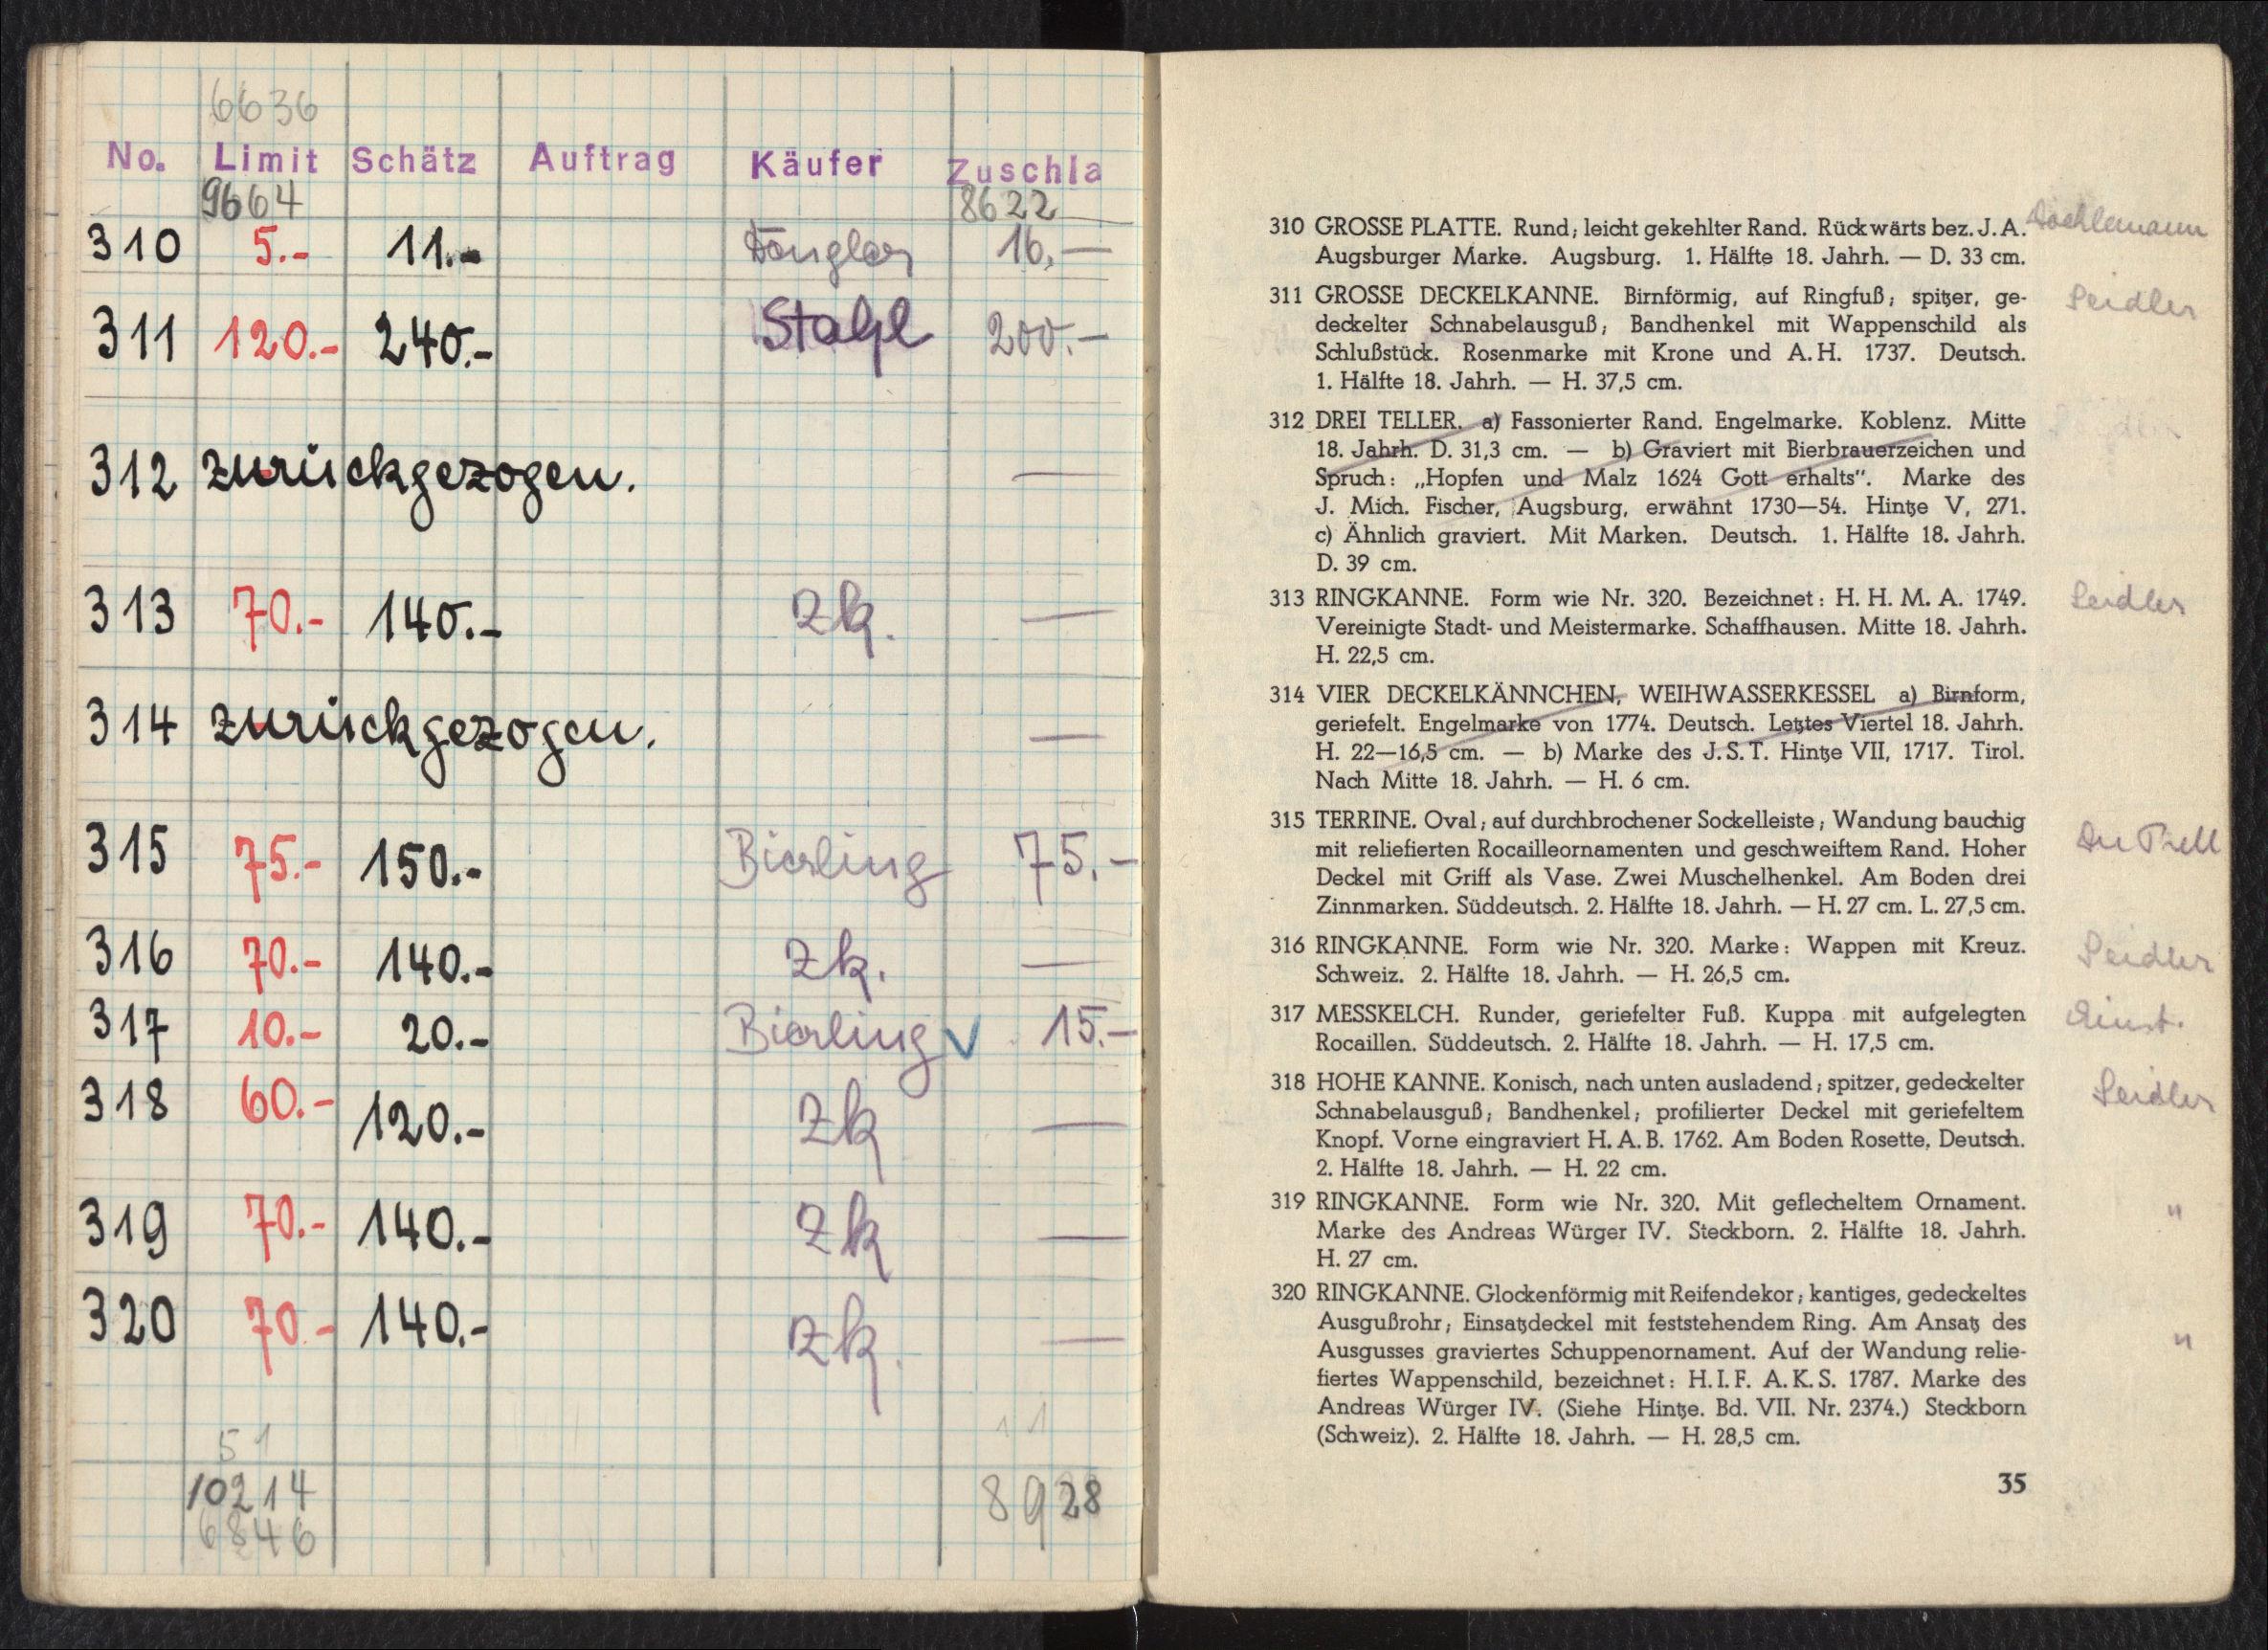 6636
No. Limit Schätz Auftrag Käufer Zuschla
9664 8622
310 5.- 11.- 16.—
311 120.- 240.- Stahl 200.—
312 zurückgezogen. —
313 70.- 140.- zk. —
314 zurückgezogen. —
315 75.- 150.- Bierling 75.-
316 70.- 140.- zk. —
317 10.- 20.- Bierling 15.-
318 60.- 120.- zk —
319 70.- 140.- zk —
320 70.- 140.- zk. —
51 11
10214 8928
6846
310 GROSSE PLATTE. Rund; leicht gekehlter Rand. Rückwärts bez. J. A.
Augsburger Marke. Augsburg. 1. Hälfte 18. Jahrh. — D. 33 cm.
311 GROSSE DECKELKANNE. Birnförmig, auf Ringfuß; spitzer, ge- Seidler
deckelter Schnabelausguß; Bandhenkel mit Wappenschild als
Schlußstück. Rosenmarke mit Krone und A. H. 1737. Deutsch.
1. Hälfte 18. Jahrh. — H. 37,5 cm.
312 DREI TELLER. a) Fassonierter Rand. Engelmarke. Koblenz. Mitte Seidler
18. Jahrh. D. 31,3 cm. — b) Graviert mit Bierbrauerzeichen und
Spruch: „Hopfen und Malz 1624 Gott erhalts“. Marke des
J. Mich. Fischer, Augsburg, erwähnt 1730—54. Hintze V, 271.
c) Ähnlich graviert. Mit Marken. Deutsch. 1. Hälfte 18. Jahrh.
D. 39 cm.
313 RINGKANNE. Form wie Nr. 320. Bezeichnet: H. H. M. A. 1749. Seidler
Vereinigte Stadt- und Meistermarke. Schaffhausen. Mitte 18. Jahrh.
H. 22,5 cm.
314 VIER DECKELKÄNNCHEN, WEIHWASSERKESSEL a) Birnform,
geriefelt. Engelmarke von 1774. Deutsch. Letztes Viertel 18. Jahrh.
H. 22—16,5 cm. — b) Marke des J. S. T. Hintze VII, 1717. Tirol.
Nach Mitte 18. Jahrh. — H. 6 cm.
315 TERRINE. Oval; auf durchbrochener Sockelleiste; Wandung bauchig
mit reliefierten Rocailleornamenten und geschweiftem Rand. Hoher
Deckel mit Griff als Vase. Zwei Muschelhenkel. Am Boden drei
Zinnmarken. Süddeutsch. 2. Hälfte 18. Jahrh. — H. 27 cm. L. 27,5 cm.
316 RINGKANNE. Form wie Nr. 320. Marke: Wappen mit Kreuz. Seidler
Schweiz. 2. Hälfte 18. Jahrh. — H. 26,5 cm.
317 MESSKELCH. Runder, geriefelter Fuß. Kuppa mit aufgelegten
Rocaillen. Süddeutsch. 2. Hälfte 18. Jahrh. — H. 17,5 cm.
318 HOHE KANNE. Konisch, nach unten ausladend; spitzer, gedeckelter Seidler
Schnabelausguß; Bandhenkel; profilierter Deckel mit geriefeltem
Knopf. Vorne eingraviert H. A. B. 1762. Am Boden Rosette. Deutsch.
2. Hälfte 18. Jahrh. — H. 22 cm.
319 RINGKANNE. Form wie Nr. 320. Mit geflecheltem Ornament. "
Marke des Andreas Würger IV. Steckborn. 2. Hälfte 18. Jahrh.
H. 27 cm.
320 RINGKANNE. Glockenförmig mit Reifendekor; kantiges, gedeckeltes
Ausgußrohr; Einsatzdeckel mit feststehendem Ring. Am Ansatz des "
Ausgusses graviertes Schuppenornament. Auf der Wandung relie-
fiertes Wappenschild, bezeichnet: H. I. F. A. K. S. 1787. Marke des
Andreas Würger IV. (Siehe Hintze. Bd. VII. Nr. 2374.) Steckborn
(Schweiz). 2. Hälfte 18. Jahrh. — H. 28,5 cm.
35